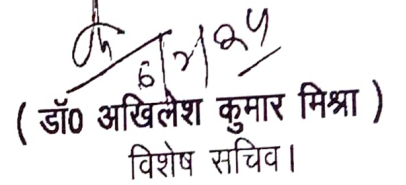 ( डॉ0 अखिलेश कुमार मिश्रा )
विशेष सचिव।